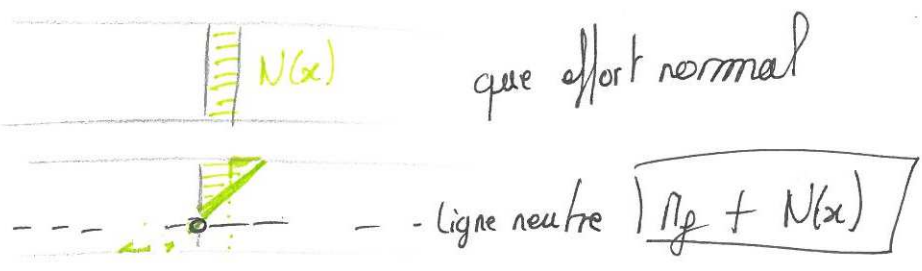 N(x) que effort normal
ligne neutre Mf + N(x)